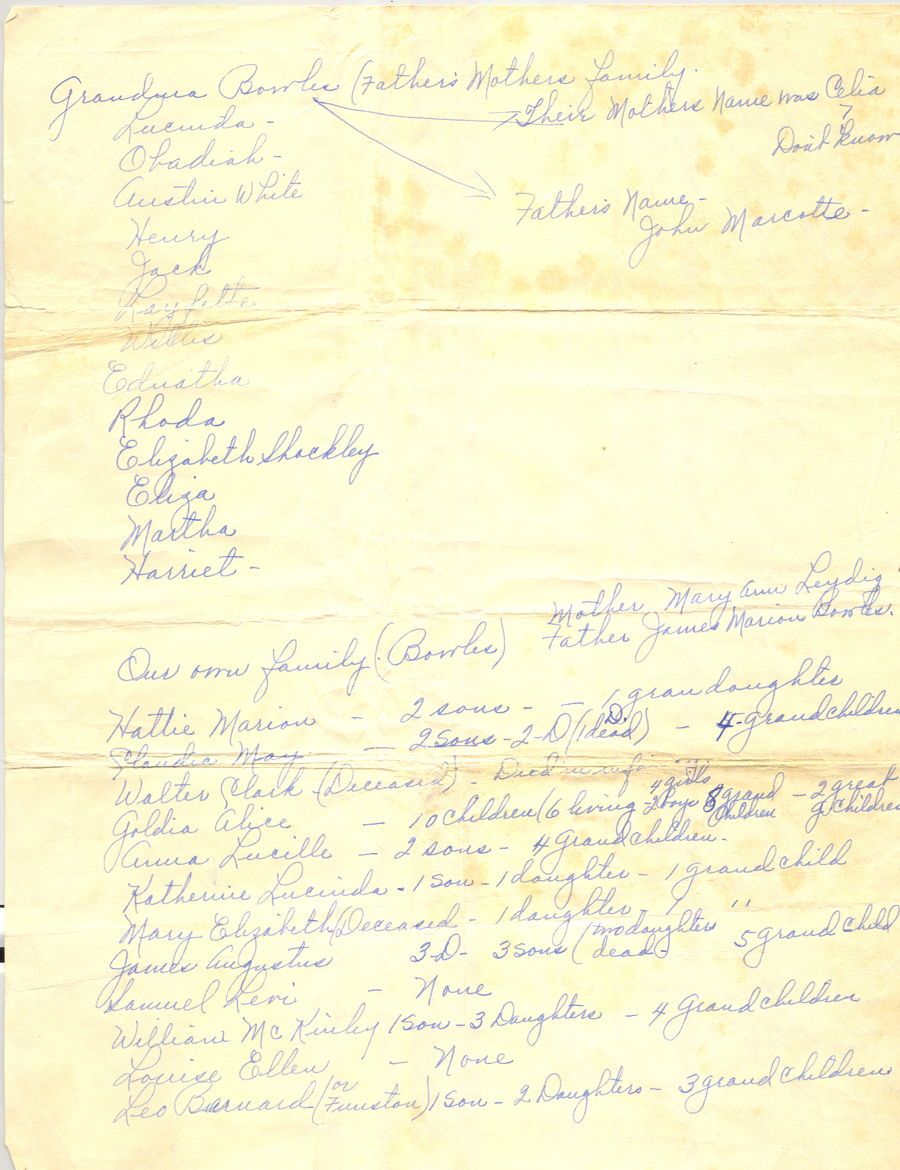 Grandma Bowles (Father's Mothers family.
Their Mothers Name was Celia
?
Don't know
Lucinda -
Obadiah -
Austin White
Father's Name -
John Marcotte -
Henry
Jack
Layfette
Willis
Ednatha
Rhoda
Elizabeth Shockley
Eliza
Martha
Harriet -
Mother Mary Ann Leydig
Father James Marion Bowles.
Our own family (Bowles)
Hattie Marion - 2 sons - - 1 grandaughter
Claudia May - 2 Sons - 2 - D (1 D. dead) - 4 - Grandchildren
Walter Clark (Deceased) - Died in
Goldia Alice - 10 children (6 living - 4 girls 2 boys 8 grand children - 2 great g. children
Anna Lucille - 2 sons - 4 grandchildren -
Katherine Lucinda - 1 son - 1 daughter - 1 grand child
Mary Elizabeth (Deceased - 1 daughter - 1 " "
James Augustus 3 - D - 3 sons (two daughters dead - 5 grand child
Samuel Levi - None
William McKinly 1 Son - 3 Daughters - 4 Grandchildren
Louise Ellen - None
Leo Barnard (or Funston) 1 Son - 2 Daughters - 3 grand children